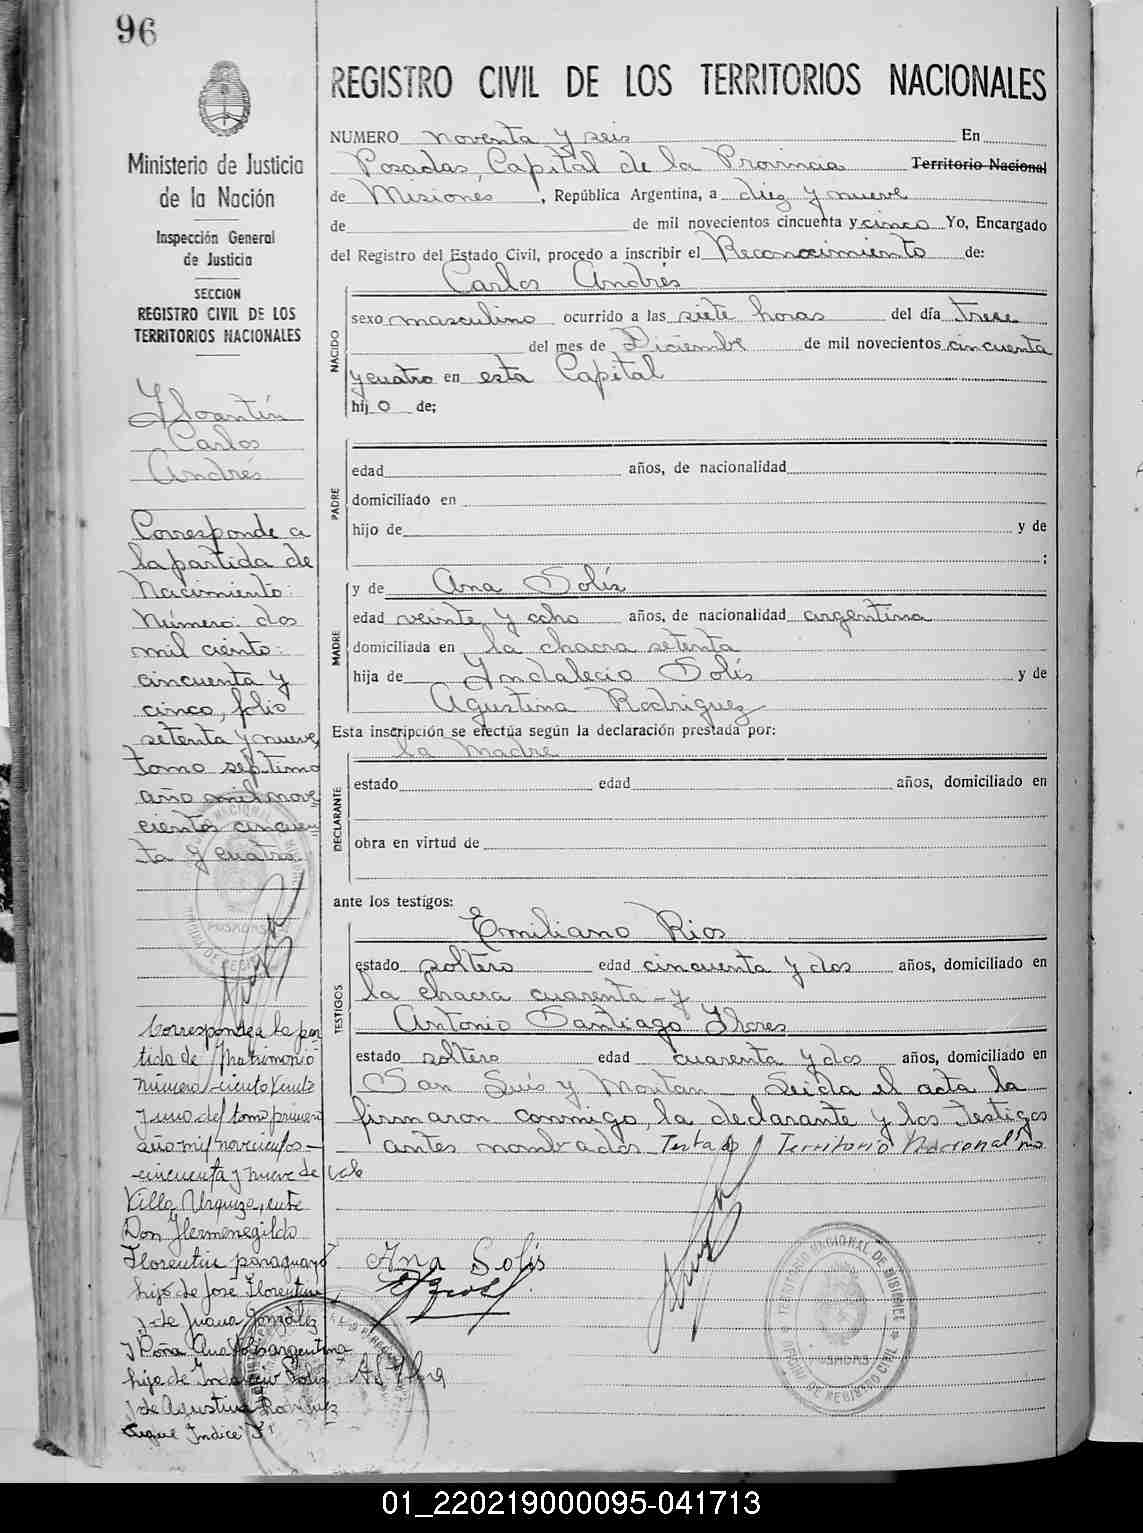 96
REGISTRO CIVIL DE LOS TERRITORIOS NACIONALES
Ministerio de Justicia
de la Nación
Inspección General
de Justicia
SECCION
REGISTRO CIVIL DE LOS
TERRITORIOS NACIONALES
NUMERO noventa y seis En
Posadas, Capital de la Provincia Territorio Nacional
de Misiones, República Argentina, a diez y nueve
de de mil novecientos cincuenta y cinco Yo, Encargado
del Registro del Estado Civil, procedo a inscribir el Reconocimiento de:
NACIDO
Carlos Andrés
sexo masculino ocurrido a las siete horas del día trece
del mes de Diciembre de mil novecientos cincuenta
y cuatro en esta Capital
hijo de;
PADRE
edad años, de nacionalidad
domiciliado en
hijo de y de
;
MADRE
y de Ana Solís
edad veinte y ocho años, de nacionalidad argentina
domiciliada en la chacra setenta
hija de Indalecio Solís y de
Agustina Rodriguez
Esta inscripción se efectúa según la declaración prestada por:
la Madre
DECLARANTE
estado edad años, domiciliado en
obra en virtud de
ante los testigos:
TESTIGOS
Emiliano Rios
estado soltero edad cincuenta y dos años, domiciliado en
la chacra cuarenta - y
Antonio Santiago Flores
estado soltero edad cuarenta y dos años, domiciliado en
San Luis y Leida el acta la
firmaron conmigo, la declarante y los testigos
antes nombrados Territorio Nacional no
vale
Ana Solís
Florentín
Carlos
Andrés
Corresponde a
la partida de
Nacimiento:
Número: dos
mil ciento:
cincuenta y
cinco, folio
setenta y nueve,
tomo septimo
año mil nove
cientos cincuen
ta y cuatro
Corresponde a la par
tida de Matrimonio
número ciento veinte
y uno del tomo primero
año mil novecientos
cincuenta y nueve de
Villa Urquiza, entre
Don Hermenegildo
Florentin paraguayo
hijo de José Florentin
y de Juana González
y Doña Ana Solis argentina
hija de Indalecio Solis
y de Agustina Rodriguez
Sigue Indice F
TERRITORIO NACIONAL DE MISIONES
POSADAS
OFICINA DE REGISTRO CIVIL
01_220219000095-041713